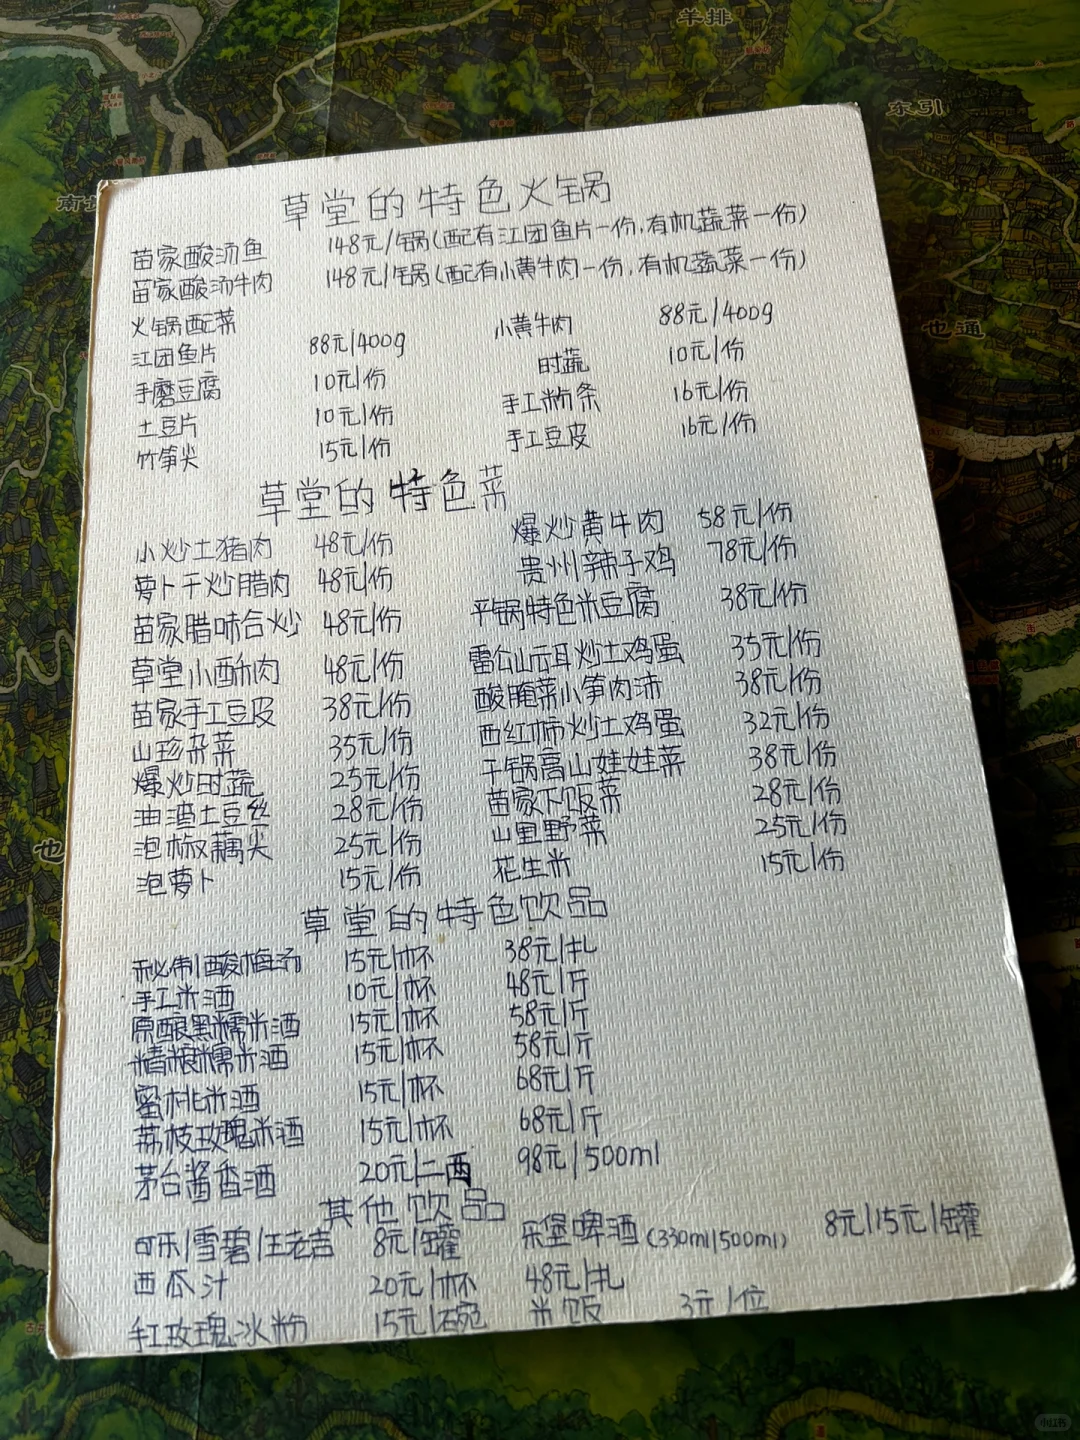 羊排
东引
也通
草堂的特色火锅
苗家酸汤鱼 148元/锅(配有江团鱼片一份,有机蔬菜一份)
苗家酸汤牛肉 148元/锅(配有小黄牛肉一份,有机蔬菜一份)
火锅配菜 小黄牛肉 88元/400g
江团鱼片 88元/400g 时蔬 10元/份
手磨豆腐 10元/份 手工粉条 16元/份
土豆片 10元/份 手工豆皮 16元/份
竹笋尖 15元/份
草堂的特色菜
小炒土猪肉 48元/份 爆炒黄牛肉 58元/份
萝卜干炒腊肉 48元/份 贵州辣子鸡 78元/份
苗家腊味合炒 48元/份 平锅特色米豆腐 38元/份
草堂小酥肉 48元/份 雷公山云耳炒土鸡蛋 35元/份
苗家手工豆皮 38元/份 酸腌菜小笋肉沫 38元/份
山珍杂菜 35元/份 西红柿炒土鸡蛋 32元/份
爆炒时蔬 25元/份 干锅高山娃娃菜 38元/份
油渣土豆丝 28元/份 苗家下饭菜 28元/份
泡椒藕尖 25元/份 山里野菜 25元/份
泡萝卜 15元/份 花生米 15元/份
草堂的特色饮品
秘制酸梅汤 15元/杯 38元/扎
手工米酒 10元/杯 48元/斤
原酿黑糯米酒 15元/杯 58元/斤
精粮糯米酒 15元/杯 58元/斤
蜜桃米酒 15元/杯 68元/斤
荔枝玫瑰米酒 15元/杯 68元/斤
茅台酱香酒 20元/二两 98元/500ml
其他饮品
可乐/雪碧/王老吉 8元/罐 乐堡啤酒(330ml/500ml) 8元/15元/罐
西瓜汁 20元/杯 48元/扎
手工玫瑰冰粉 15元/碗 米饭 3元/位
小红书